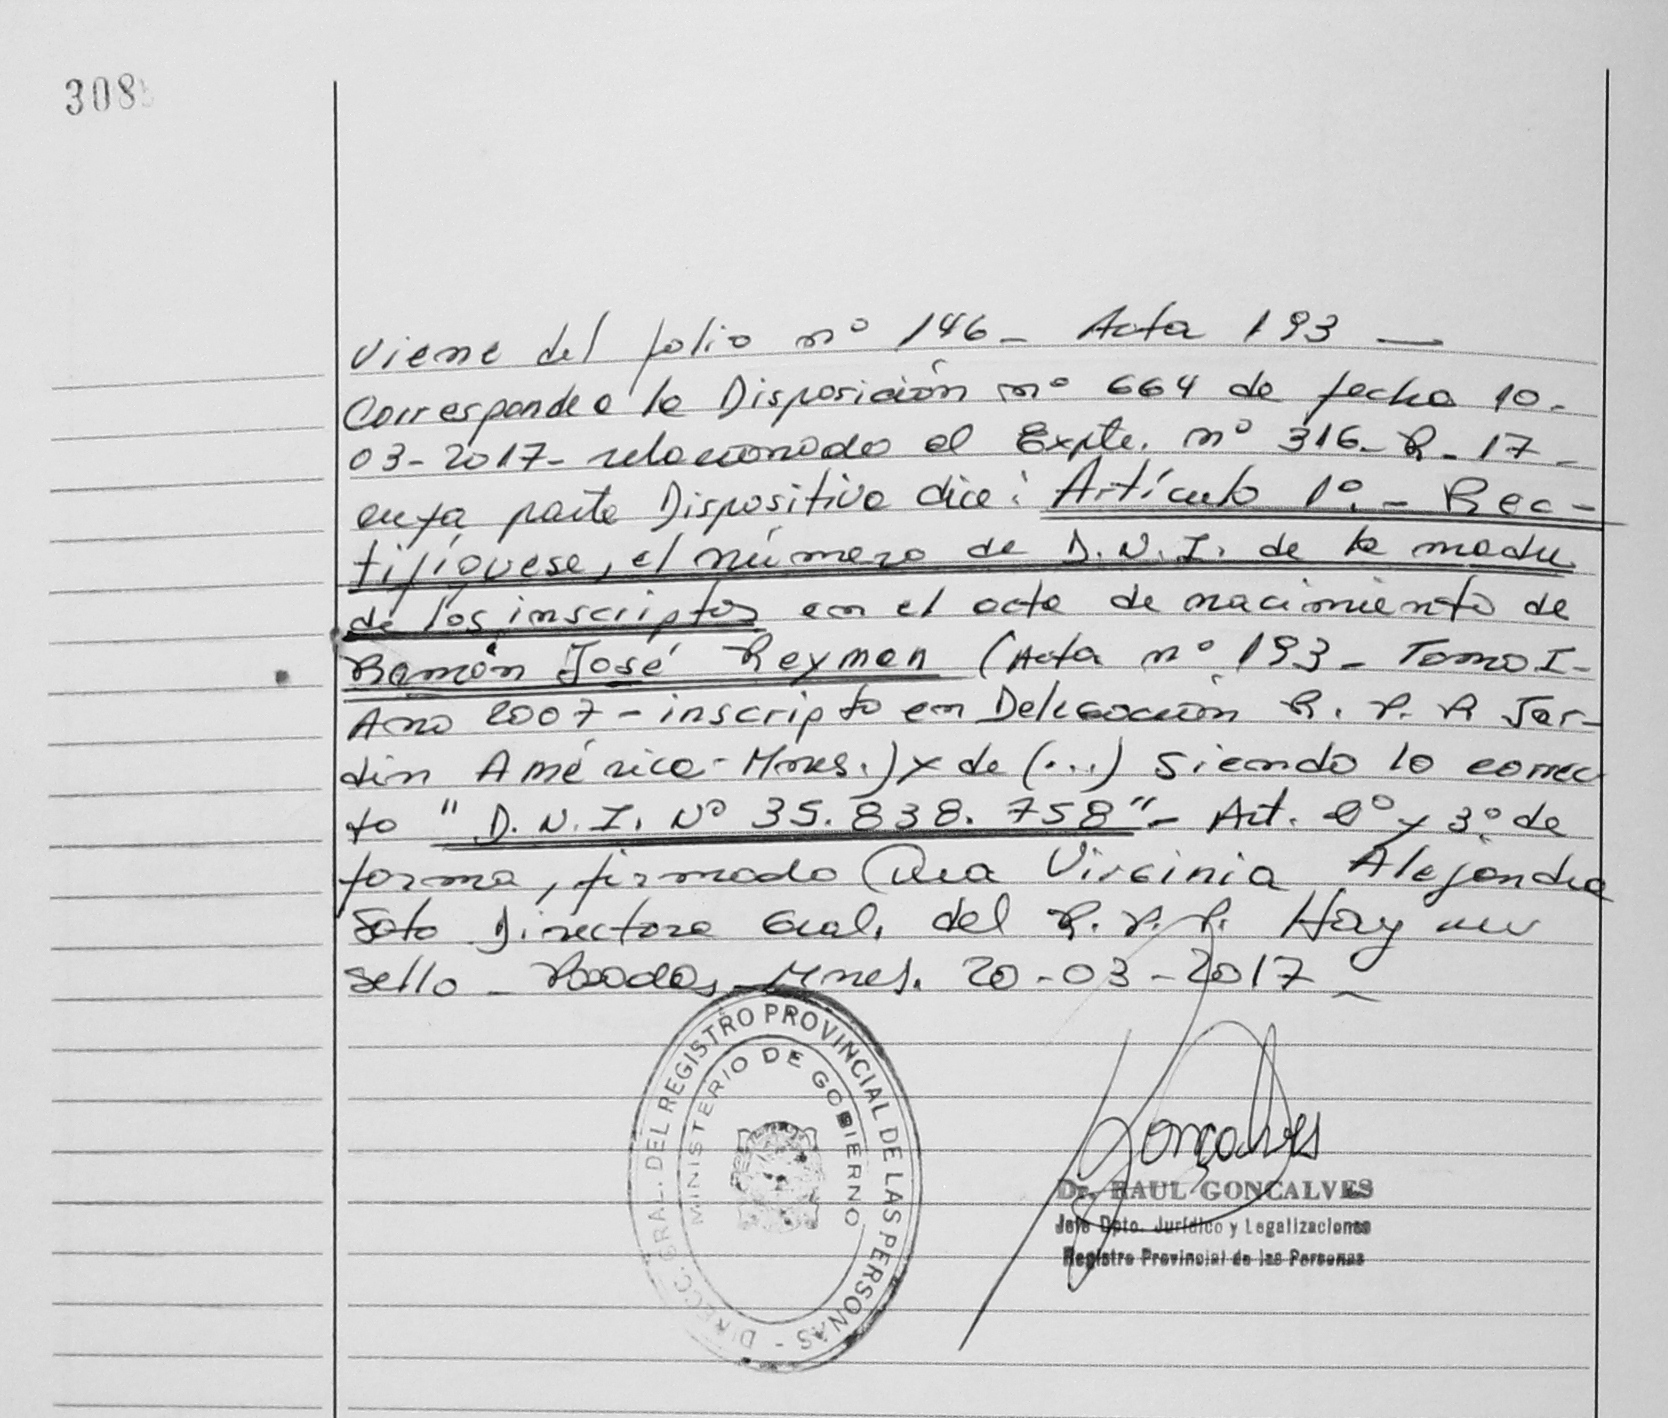 308
Viene del folio nº 146 - Acta 193 —
Corresponde a la Disposición nº 664 de fecha 10-
03-2017- relacionado al Expte. nº 316-R-17-
cuya parte Dispositiva dice: Artículo 1º.- Rec-
tifíquese, el número de D.N.I. de la madre
de los inscriptos en el acta de nacimiento de
Ramón José Reyman (Acta nº 193 - Tomo I-
Año 2007 - inscripto en Delegación R.P.P Jar-
din América - Mnes.) y de (...) siendo lo correc
to "D.N.I. Nº 35.838.758"- Art. 2º y 3º de
forma, firmado Virginia Alejandra
Soto Directora Gral. del R.P.P. Hay un
sello - Posadas, Mnes. 20-03-2017 -
DIRECC. GRAL. DEL REGISTRO PROVINCIAL DE LAS PERSONAS -
MINISTERIO DE GOBIERNO
Gonçalves
Dr. RAUL GONÇALVES
Jefe Dpto. Jurídico y Legalizaciones
Registro Provincial de las Personas